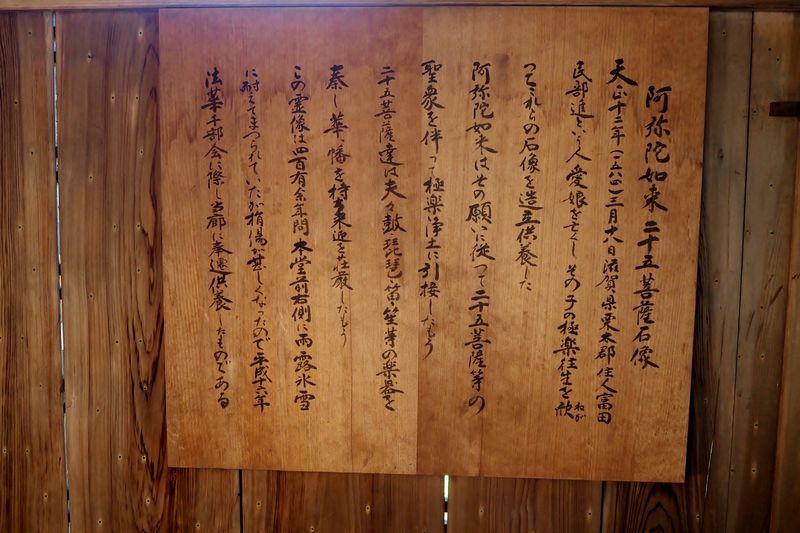 阿弥陀如来二十五菩薩石像
天正十二年(一五八四)三月十八日滋賀県栗太郡住人富田
民部進という人愛娘を亡くしその子の極楽往生を欣
ねが
つてこれらの石像を造立供養した
阿弥陀如来はその願いに従って二十五菩薩等の
聖衆を伴って極楽浄土に引接したもう
二十五菩薩達は夫々鼓琵琶笛笙等の楽器を
奏し華幡を持ち来迎を荘厳したもう
この霊像は四百有余年間本堂前右側に雨露氷雪
に耐えてまつられていたが損傷が甚しくなったので平成十六年
法華千部会に際し当廊に奉遷供養したものである